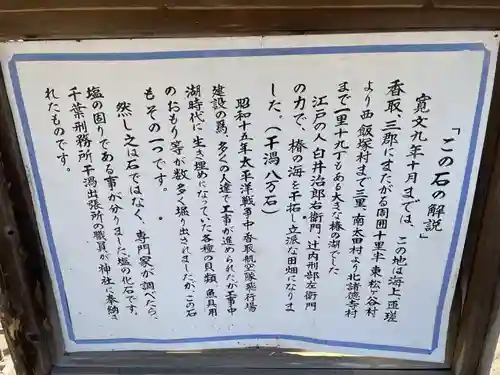 「この石の解説」
寛文九年十月までは、この地は海上匝瑳
香取、三郡にまたがる周囲十里半 東松ヶ谷村
より西 飯塚村まで三里、南太田村より北諸徳寺村
まで一里十九丁もある大きな椿の湖でした
江戸の人白井治郎右衛門、辻内刑部左衛門
の力で、椿の海を干拓し立派な田畑になりま
した。(干潟八万石)
昭和十五年太平洋戦争中香取航空隊飛行場
建設の為、多くの人達で工事が進められたが工事中
湖時代に生き埋めになっていた各種の貝類、魚具用
のおもり等が数多く堀り出されましたが、この石
もその一つです。
然し之は石ではなく、専門家が調べたら、
塩の固りである事が分りました塩の化石です。
千葉刑務所干潟出張所の職員が神社に奉納さ
れたものです。